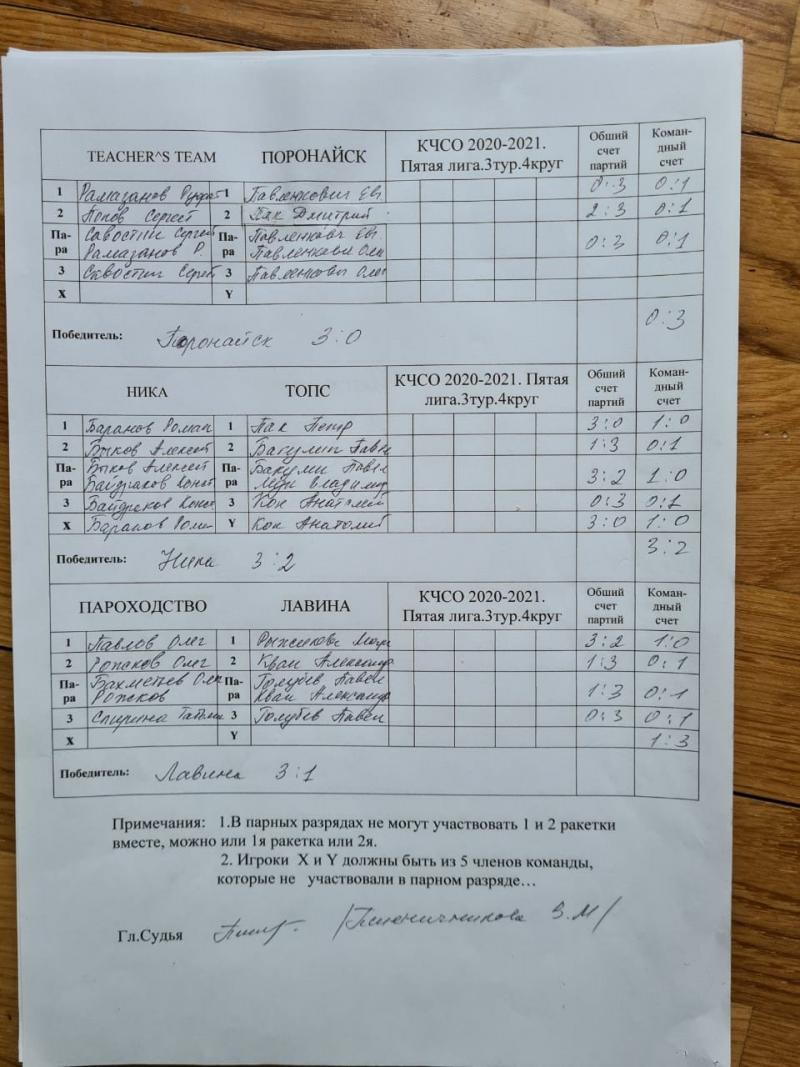 TEACHER^S TEAM ПОРОНАЙСК КЧСО 2020-2021. Пятая лига.3тур.4круг Обший счет партий Коман-дный счет
1 Рамазанов 1 Павленкович Евг 0:3 0:1
2 Попов Сергей 2 Пак Дмитрий 2:3 0:1
Па-ра Савостин Сергей Па-ра Павленкович Евг
Рамазанов Р. Павленкович Олег 0:3 0:1
3 Савостин Сергей 3 Павленкович Олег
X Y
Победитель: Поронайск 3:0 0:3
НИКА ТОПС КЧСО 2020-2021. Пятая лига.3тур.4круг Обший счет партий Коман-дный счет
1 Баранов Роман 1 Пак Петр 3:0 1:0
2 Быков Алексей 2 Бакулин Павел 1:3 0:1
Па-ра Быков Алексей Па-ра Бакулин Павел
Байдраков Конст Мун Владимир 3:2 1:0
3 Байдраков Конст 3 Кон Анатолий 0:3 0:1
X Баранов Роман Y Кон Анатолий 3:0 1:0
Победитель: Ника 3:2 3:2
ПАРОХОДСТВО ЛАВИНА КЧСО 2020-2021. Пятая лига.3тур.4круг Обший счет партий Коман-дный счет
1 Павлов Олег 1 Рыженкова 3:2 1:0
2 Рожков Олег 2 Кван Александр 1:3 0:1
Па-ра Бахметьев Па-ра Голубев Павел
Рожков Кван Александр 1:3 0:1
3 Спирина 3 Голубев Павел 0:3 0:1
X Y 1:3
Победитель: Лавина 3:1
Примечания: 1.В парных разрядах не могут участвовать 1 и 2 ракетки
вместе, можно или 1я ракетка или 2я.
2. Игроки X и Y должны быть из 5 членов команды,
которые не участвовали в парном разряде…
Гл.Судья /Пшеничникова З.М/